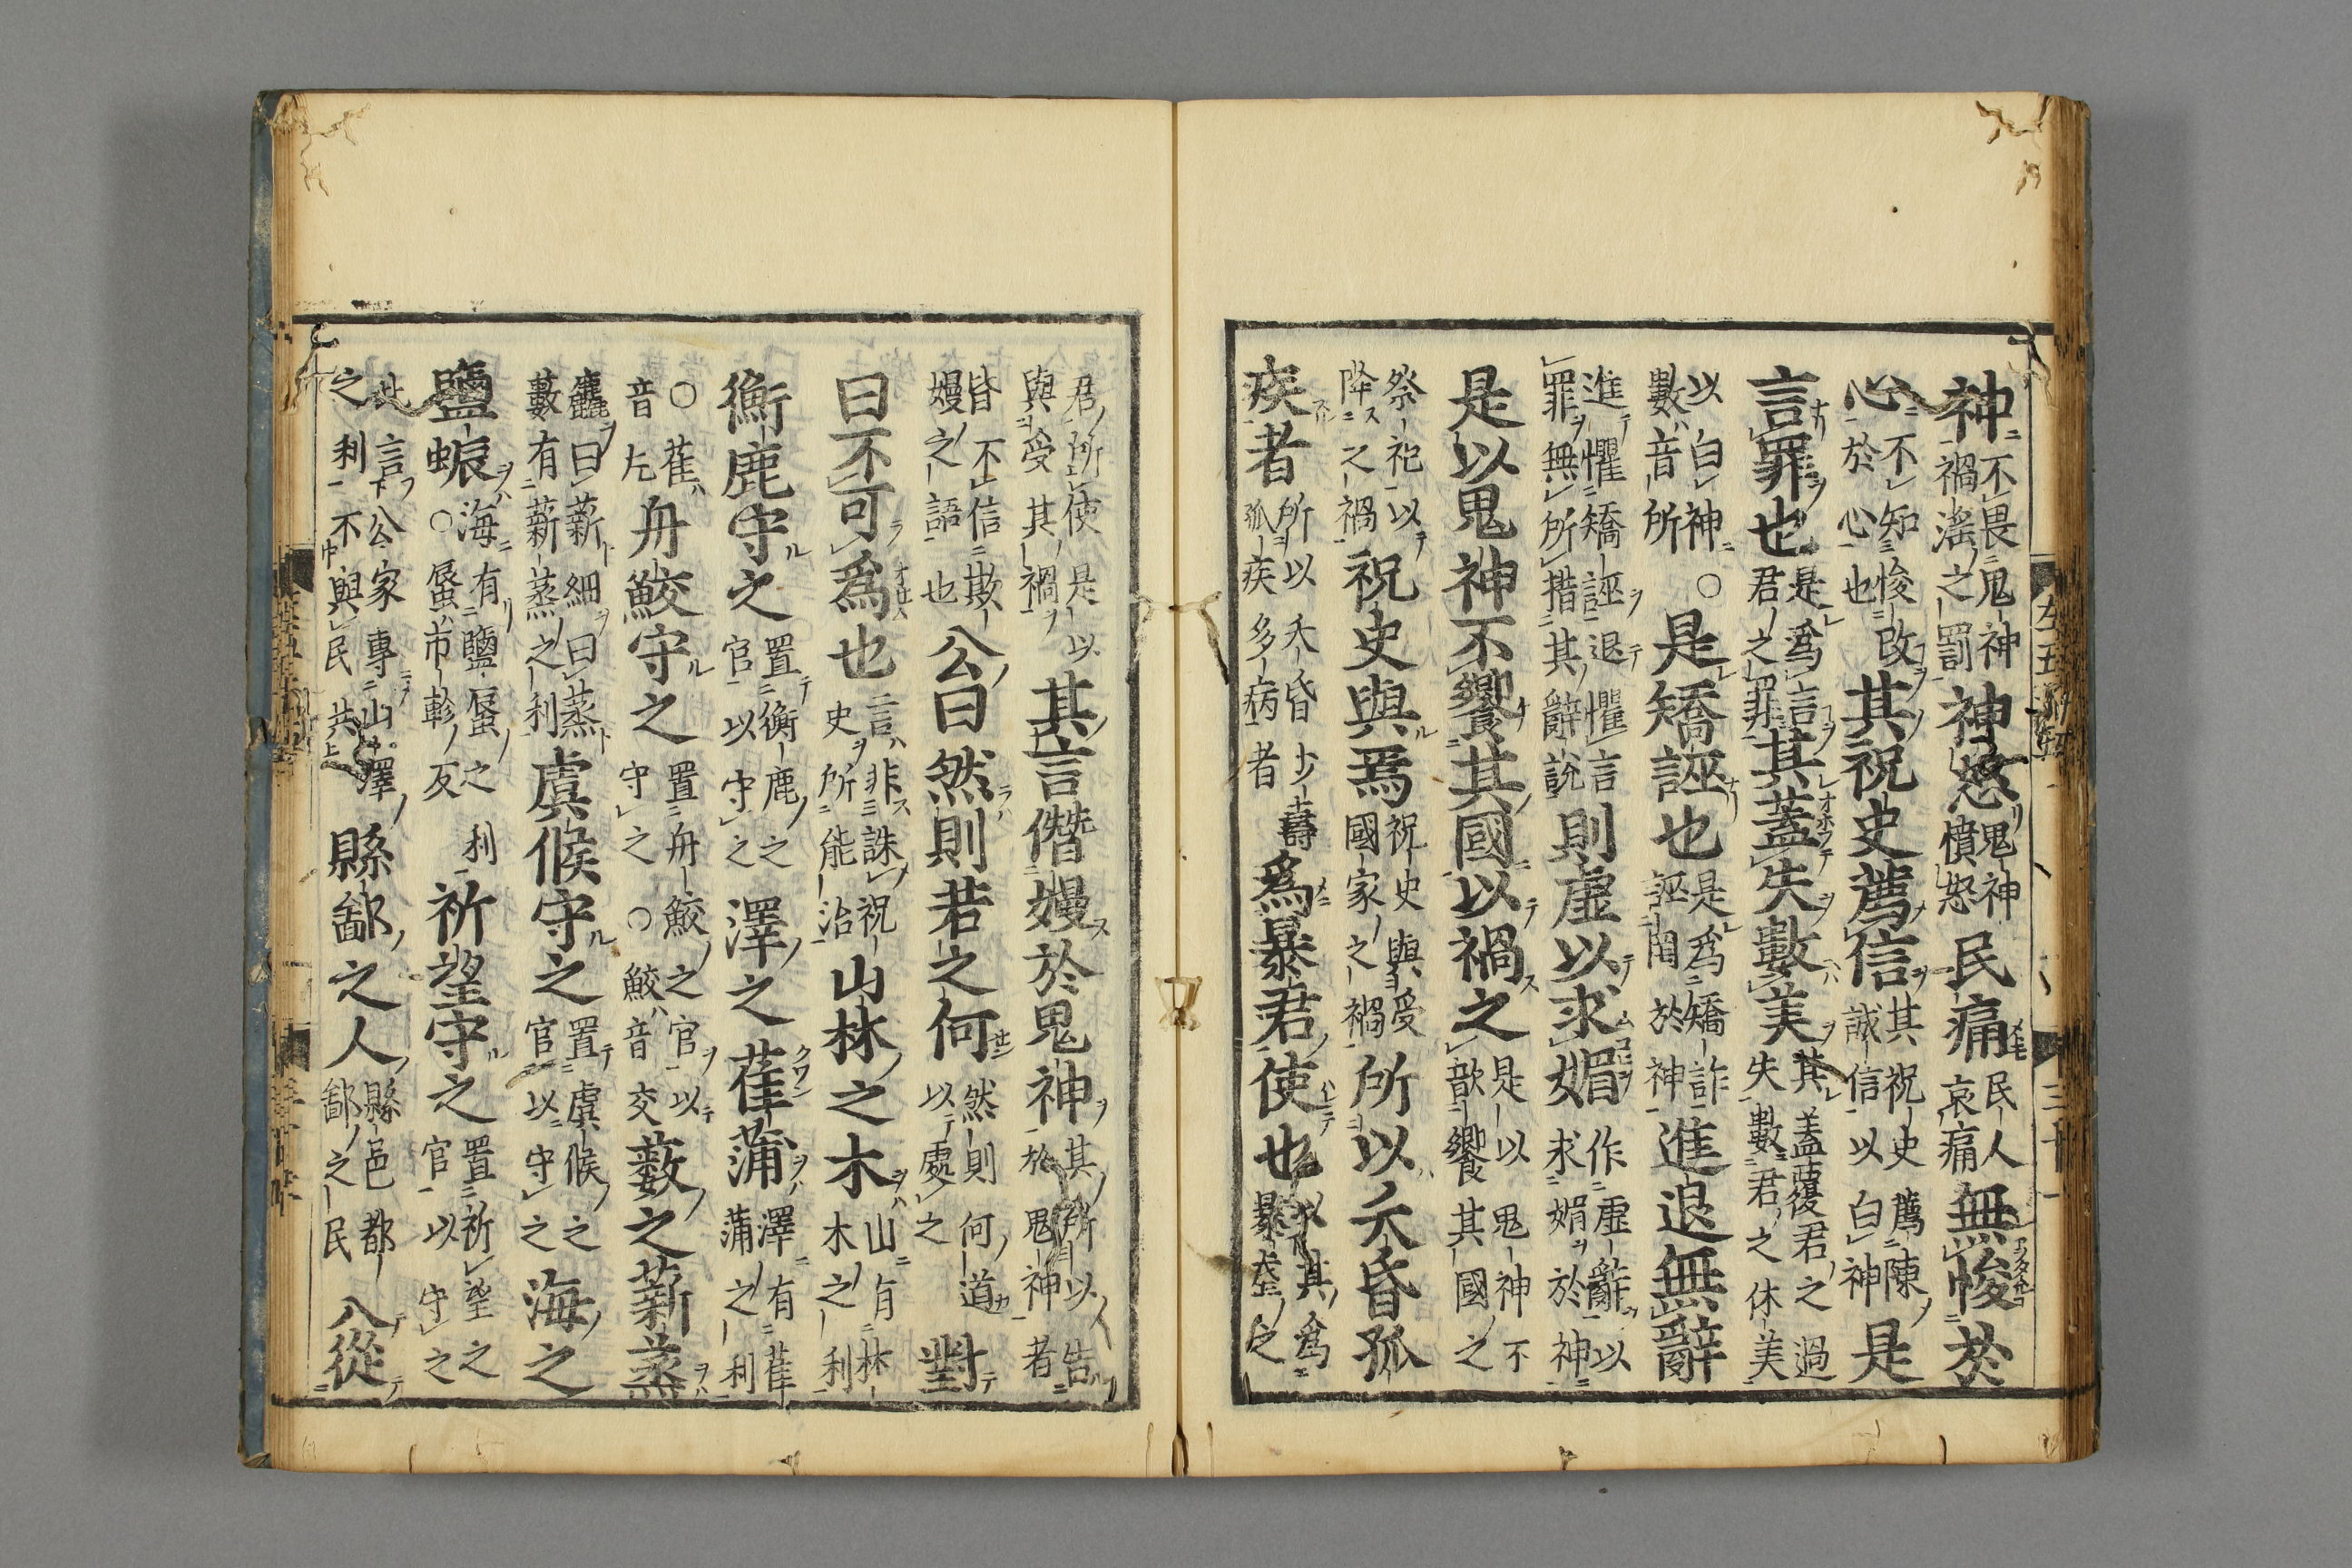 神不畏鬼神禍滛之罰神怒鬼神憤怒民痛民人哀痛無悛於
心不知悛改於心也其祝史薦信其祝史薦陳誠信以白神是
言罪也是為言君之罪其蓋失數美其蓋覆君之過失數君之休美
以白神○數音所是矯誣也是為矯詐誣罔於神進退無辭
進懼矯誣退懼言罪無所措其辭說則虛以求媚作虛辭以求媚於神
是以鬼神不饗其國以禍之是以鬼神不歆饗其國之
祭祀以降之禍祝史與焉祝史與受國家之禍所以夭昏孤
疾者所以夭昏少壽孤疾多病者為暴君使也以其為暴虐之
君所使是以與受其禍其言僭嫚於鬼神其所以告於鬼神者
皆不信欺嫚之語也公曰然則若之何然則何道以處之對
曰不可為也言非誅祝史所能治山林之木山有林木之利
衡鹿守之置衡鹿之官以守之澤之萑蒲澤有萑蒲之利
○萑音舟鮫守之置舟鮫之官以守之○鮫音交藪之薪蒸
麤曰薪細曰蒸藪有薪蒸之利虞候守之置虞候之官以守之海之
鹽蜄海有鹽蜃之利○蜃市軫反祈望守之置祈望之官以守之
此言公家專山澤之利不與民共縣鄙之人縣邑都鄙之民入從